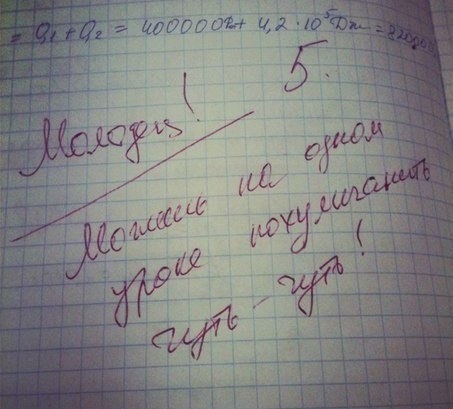 = Q₁ + Q₂ = 400000Дж + 4,2 · 10⁵ Дж = 820000
5.
Молодец!
Можешь на одном
уроке похулиганить
чуть-чуть!